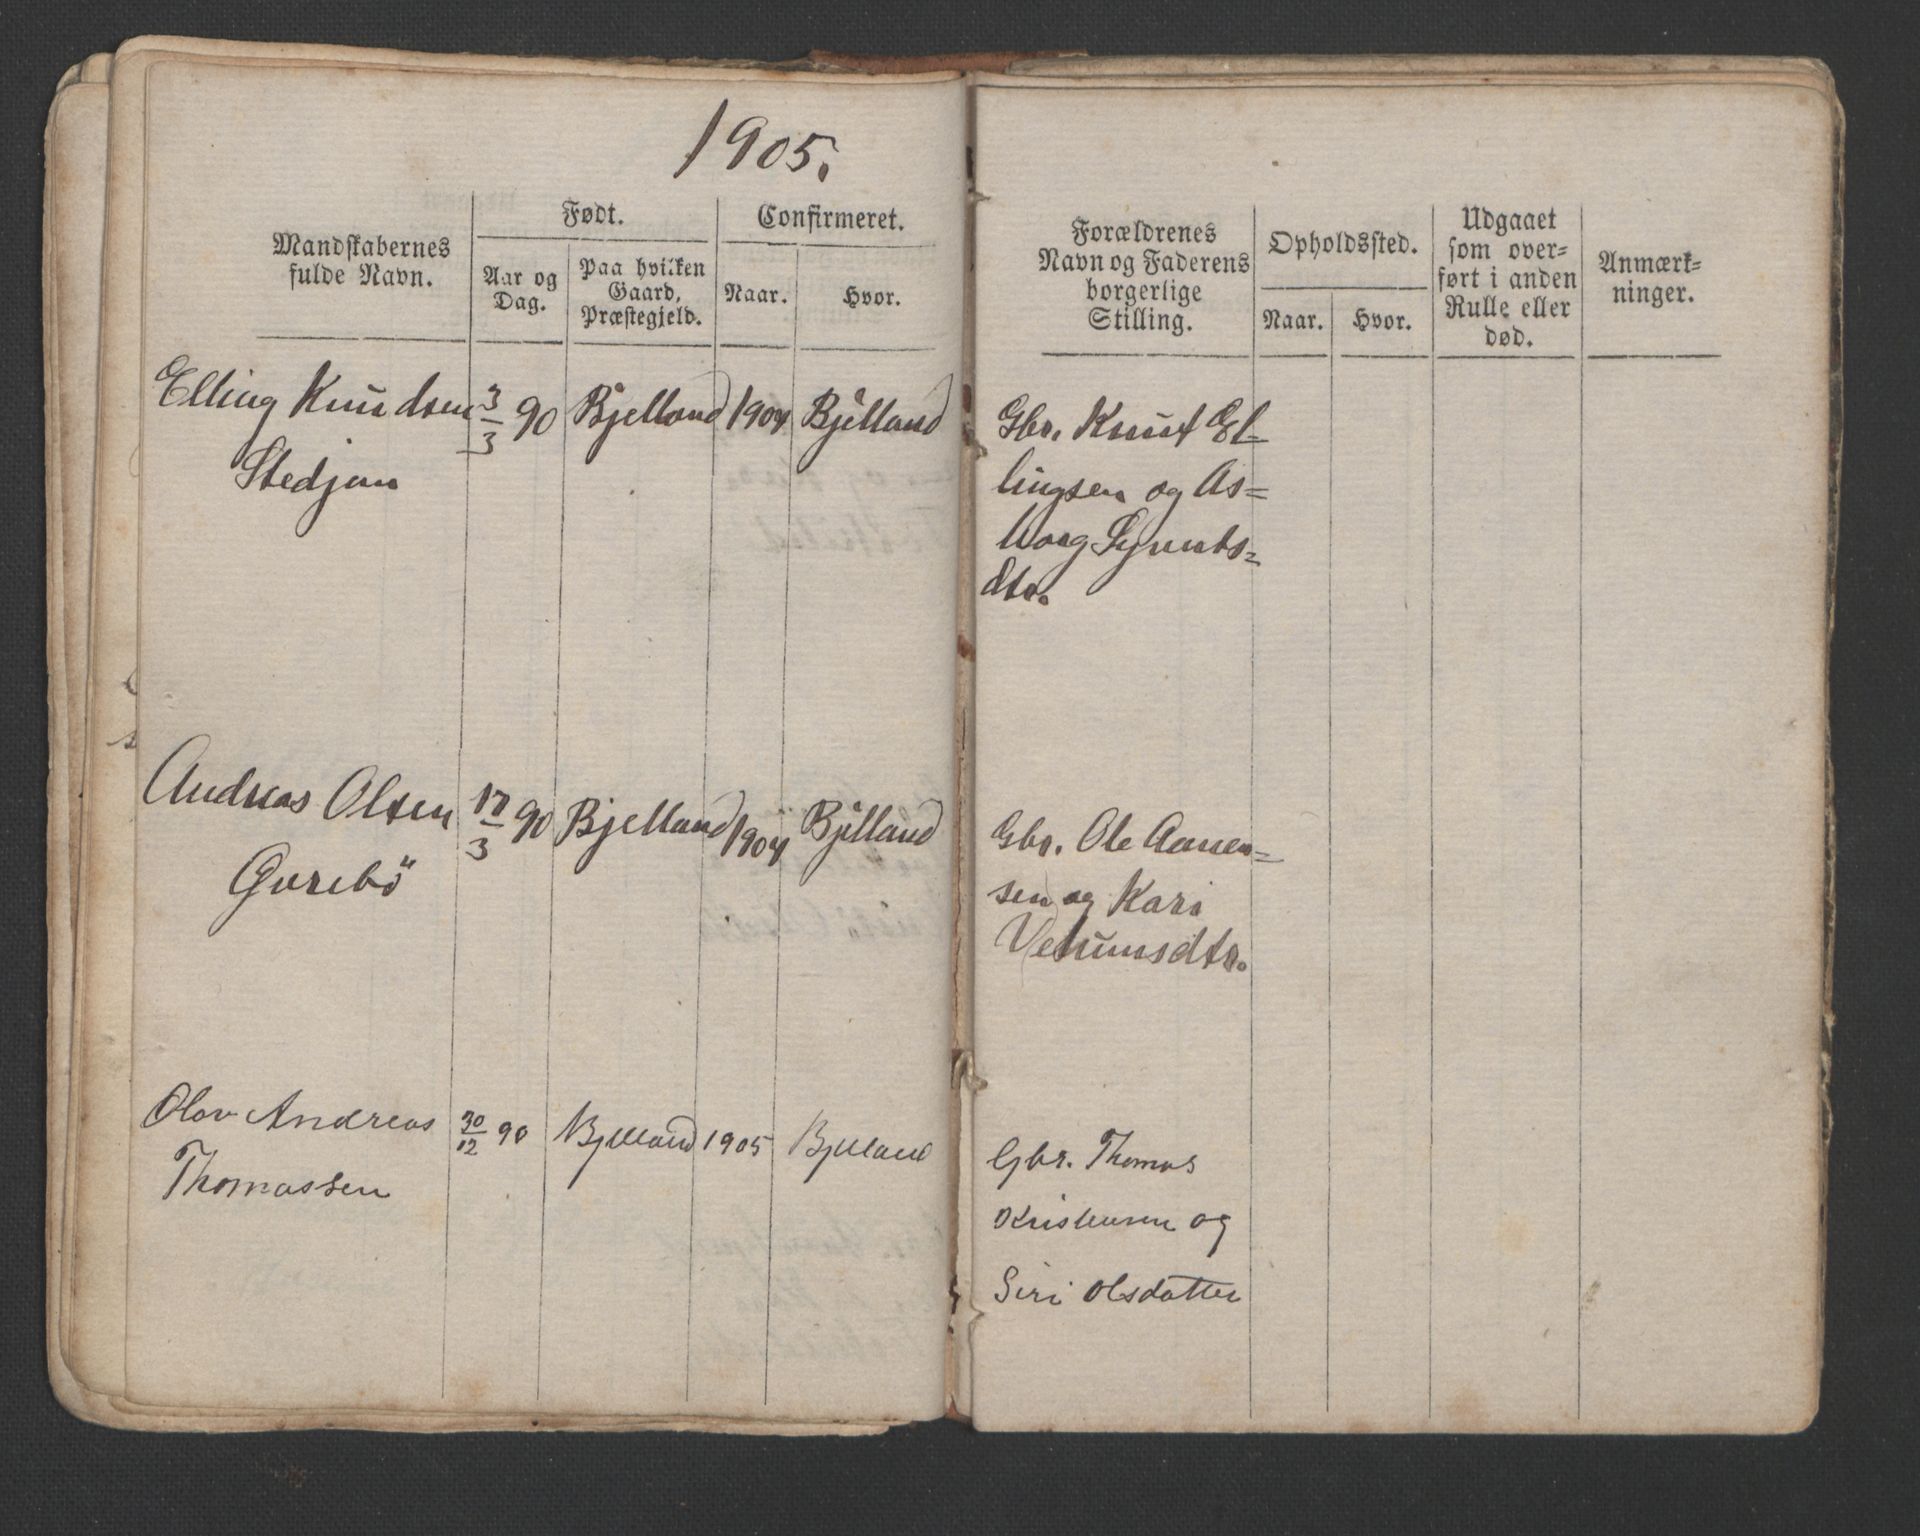 1905.
Mandskabernes
fulde Navn.
Født.
Aar og
Dag.
Paa hvilken
Gaard,
Præstegjeld.
Confirmeret.
Naar.
Hvor.
Forældrenes
Navn og Faderens
borgerlige
Stilling.
Opholdssted.
Naar.
Hvor.
Udgaaet
som over-
ført i anden
Rulle eller
død.
Anmærk-
ninger.
Elling Knudsen 3/3 90 Bjelland 1904 Bjelland
Stedjan
Gbr. Knut El-
lingsen og As-
borg Syvnts-
dtr.
Andreas Olsen 17/3 90 Bjelland 1904 Bjelland
Gurebö
Gbr. Ole Aanen-
sen og Kari
Vetumsdtr.
Olav Andreas 30/12 90 Bjelland 1905 Bjelland
Thomassen
Gbr. Thomas
Kristensen og
Siri Olsdatter